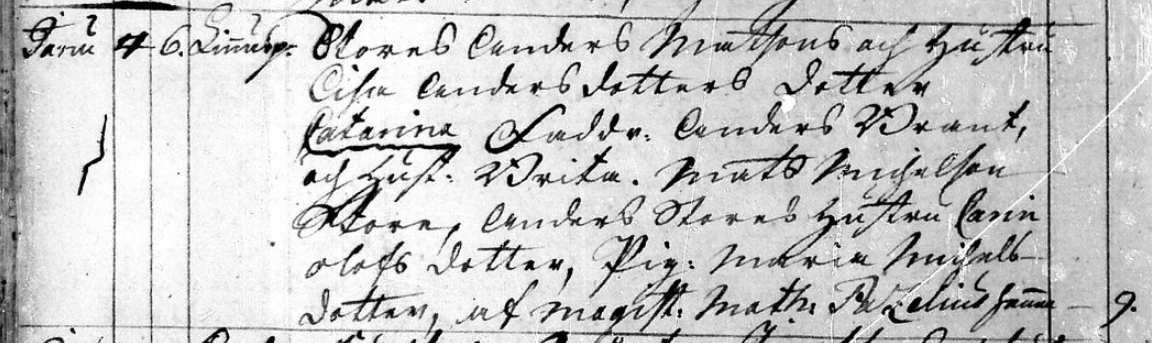 4 6. Stores Anders Matsons och Hustru
Lisa Anders dotters dotter
Catarina Faddr: Anders Brant,
och Hust: Brita. Mats Michelson
Store, Anders Stores Hustru Carin
Olofs dotter, Pig: Maria Michels-
dotter, af Magist: Math: 9.